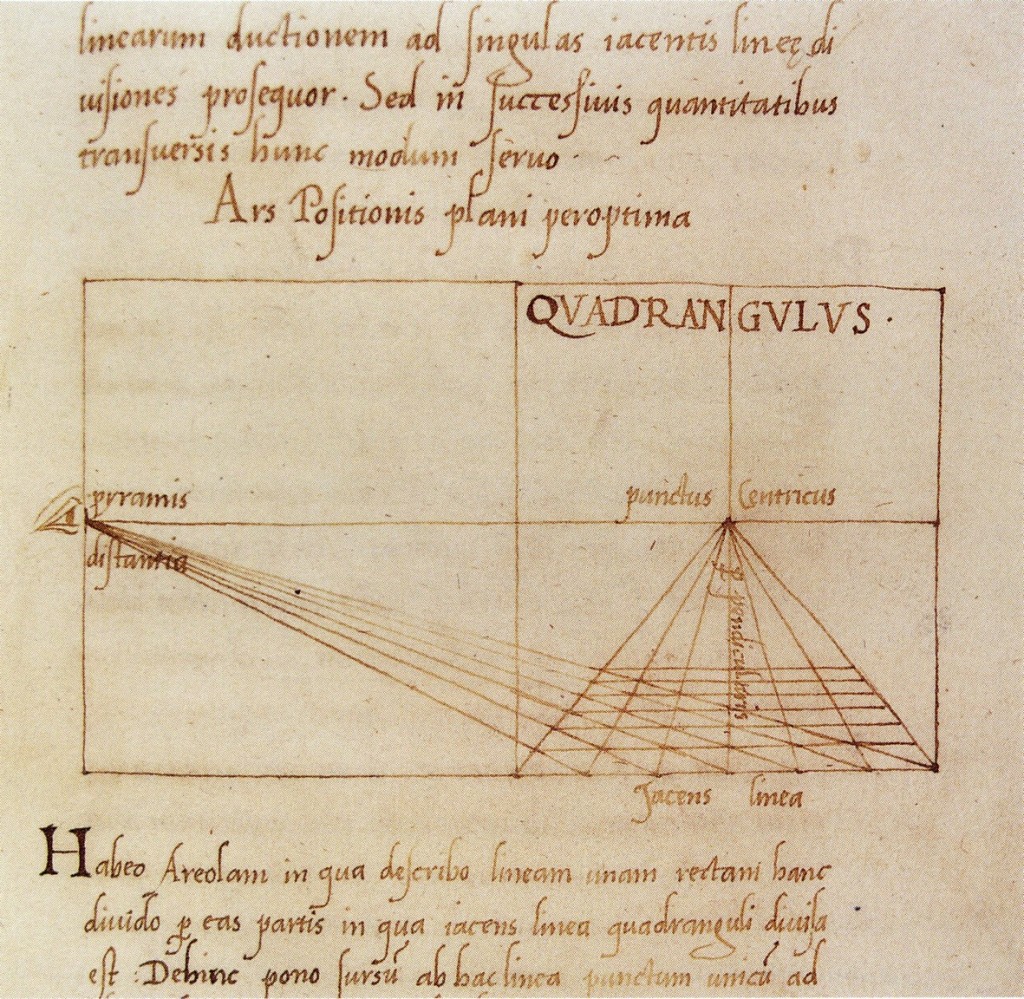 linearum ductionem ad singulas iacentis lineę di
uisiones prosequor. Sed in successiuis quantitatibus
transuersis hunc modum seruo.
Ars Positionis plani peroptima
QVADRANGVLVS.
pyramis
punctus Centricus
distantia
ꝑpendicularis
Jacens linea
Habeo Areolam in qua describo lineam unam rectam hanc
diuido ꝑ eas partis in qua iacens linea quadranguli diuisa
est : Dehinc pono sursū ab hac linea punctum unicū ad